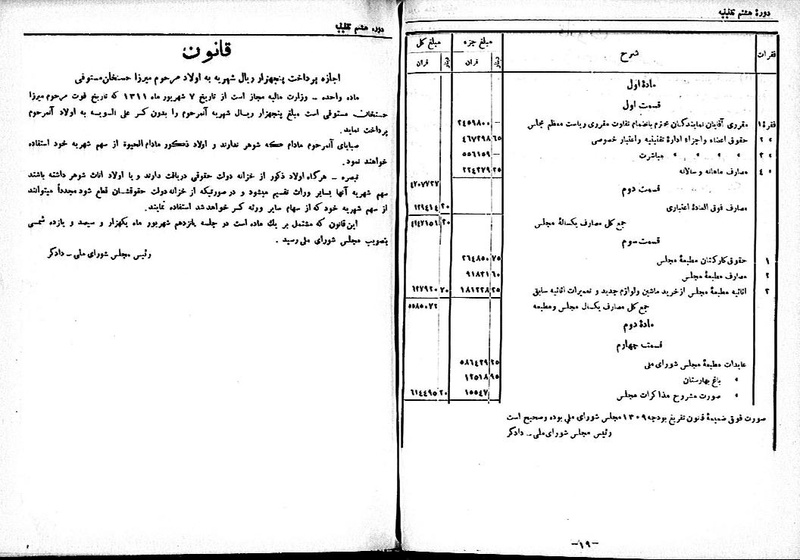 دورهٔ هشتم تقنینیه
فقرات شرح مبلغ جزء مبلغ کل
قران دینار قران دینار
مادهٔ اول
قسمت اول
فقرهٔ ۱ مقرری آقایان نمایندگان محترم بانضمام تفاوت مقرری ریاست معظم مجلس ۲۴۵۹۸۰۰
۲ » حقوق اعضاء و اجزاء ادارهٔ تقنینیه و اعتبار خصوصی ۴۶۷۲۹۸ ۶۵
۳ » » » » » مباشرت ۵۵۶۱۵۹
۴ » مصارف ماهانه و سالانه ۲۲۴۴۷۹ ۲۵
۴۷۰۷۷۳۷
قسمت دوم
مصارف فوق العادهٔ اعتباری ۱۳۹۴۱۴ ۲۰
جمع کل مصارف یکسالهٔ مجلس ۴۸۴۷۱۵۱ ۲۰
قسمت سوم
۱ حقوق کارکنان مطبعهٔ مجلس ۲۶۴۸۵۰ ۷۵
۲ مصارف مطبعهٔ مجلس ۹۱۸۳۱ ۶۰
۳ اثاثیه مطبعهٔ مجلس از خرید ماشین ولوازم جدید و تعمیرات اثاثیه سابق ۱۸۱۲۳۸ ۳۵ ۶۳۷۹۲۰ ۷۰
جمع کل مصارف یکسال مجلس ومطبعه ۵۵۸۵۰۷۲
مادهٔ دوم
قسمت چهارم
عایدات مطبعهٔ مجلس شورای ملی ۵۸۶۴۲۹ ۲۵
» باغ بهارستان ۱۲۵۱۸ ۹۵
» صورت مشروح مذاکرات مجلس ۱۵۵۴۷ ۶۱۴۴۹۵ ۲۰
صورت فوق ضمیمهٔ قانون تفریغ بودجه ۱۳۰۹ مجلس شورای ملی بوده وصحیح است
رئیس مجلس شورای ملی ـ دادگر
-۱۹-
دوره هشتم تقنینیه
قانون
اجازه پرداخت پنجهزار ریال شهریه به اولاد مرحوم میرزا حسنخان مستوفی
ماده واحده ـ وزارت مالیه مجاز است از تاریخ ۷ شهریور ماه ۱۳۱۱ که تاریخ فوت مرحوم میرزا
حسنخان مستوفی است مبلغ پنجهزار ریال شهریه آنمرحوم را بدون کسر علی السویه به اولاد آنمرحوم
پرداخت نماید.
صبایای آنمرحوم مادام که شوهر ندارند و اولاد ذکور مادام الحیوة از سهم شهریه خود استفاده
خواهند نمود.
تبصره ـ هرگاه اولاد ذکور از خزانه دولت حقوقی دریافت دارند و یا اولاد اناث شوهر داشته باشند
سهم شهریه آنها بسایر وراث تقسیم میشود و در صورتیکه از خزانه دولت حقوقشان قطع شود مجدداً میتوانند
از سهم شهریه خود که از سهام سایر ورثه کسر خواهد شد استفاده نمایند.
این قانون که مشتمل بر یك ماده است در جلسه پانزدهم شهریور ماه یکهزار و سیصد و یازده شمسی
بتصویب مجلس شورای ملی رسید.
رئیس مجلس شورای ملی ـ دادگر